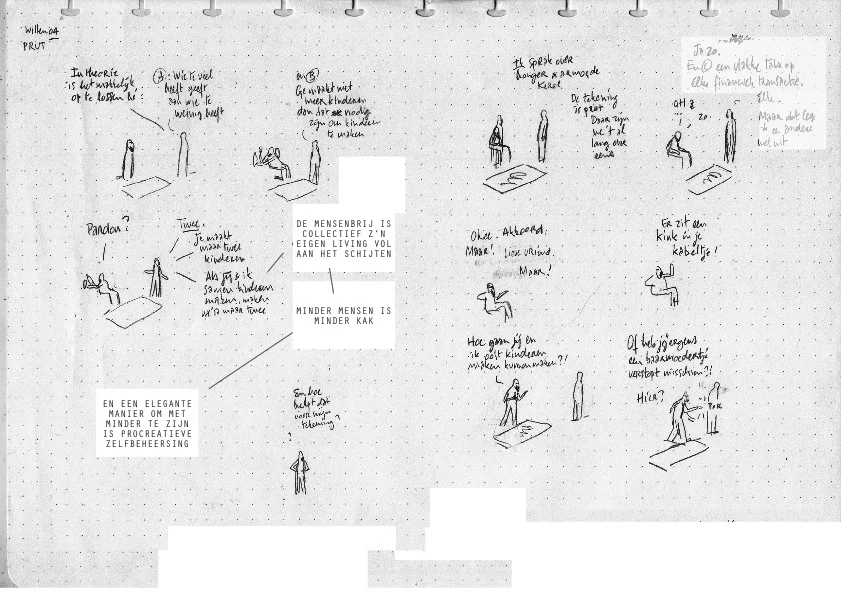 Willem
PRUT
In theorie
is het makkelijk
op te lossen hè:
A: Wie te veel
heeft geeft
aan wie te
weinig heeft
en B
Ge maakt niet
meer kinderen
dan dat nodig
zijn om kinderen
te maken
Pardon?
Twee.
Je maakt
maar twee
kinderen
Als jij & ik
samen kinderen
maken, maken
we's maar twee
DE MENSENBRIJ IS
COLLECTIEF Z'N
EIGEN LIVING VOL
AAN HET SCHIJTEN
MINDER MENSEN IS
MINDER KAK
EN EEN ELEGANTE
MANIER OM MET
MINDER TE ZIJN
IS PROCREATIEVE
ZELFBEHEERSING
En hoe
helpt dat
onze
tekening?
?
Ik sprak over
honger & armoede
De tekening
is prut
Daar zijn
we 't al
lang over
eens
Ja zo.
En een vlakke taks op
elke financiële transactie.
Elke.
Maar dat leg
ik een andere
keer uit
zo.
Okee. Akkoord.
Maar! Lieve vriend.
Maar!
Er zit een
kink in je
kabeltje!
Hoe gaan jij en
ik ooit kinderen
maken kunnen maken?!
Of heb jij ergens
een baarmoedertje
verstopt misschien?!
Hier?
POK